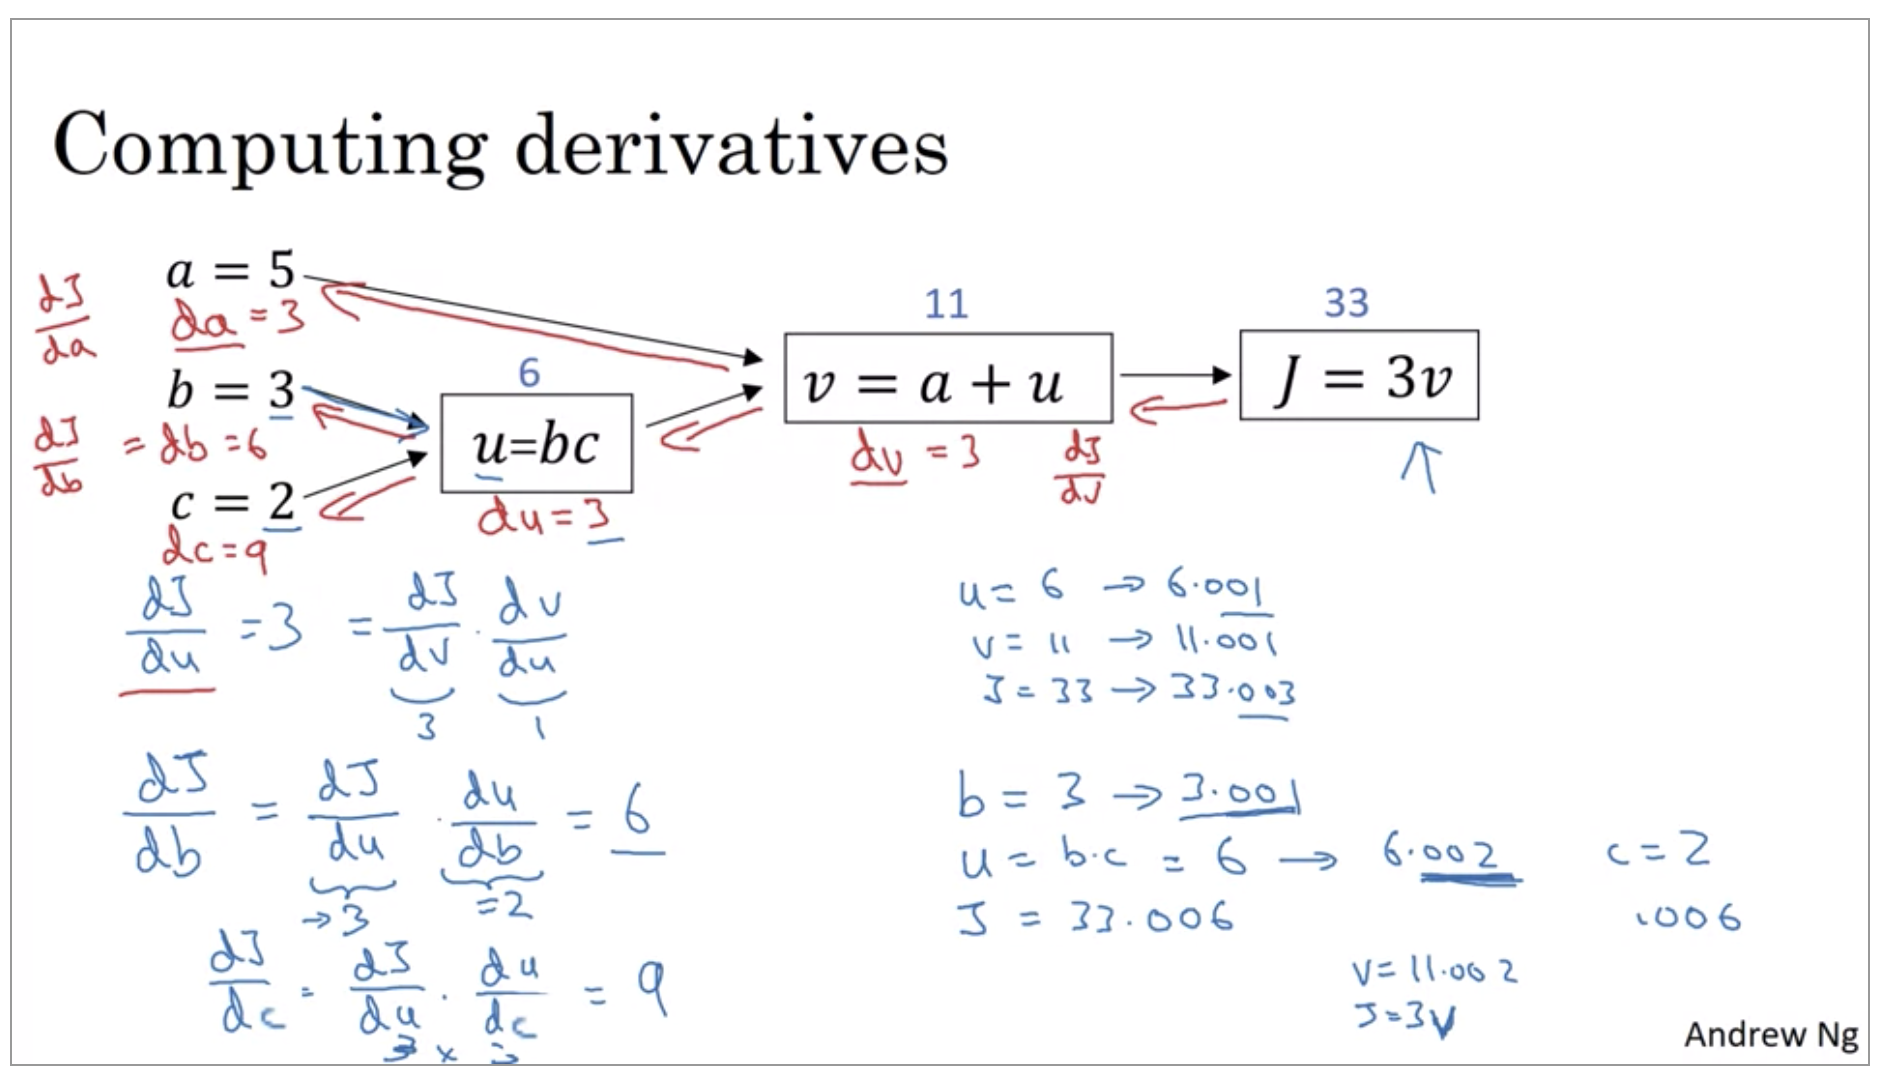 Computing derivatives
a = 5
dJ/da da = 3
b = 3
dJ/db = db = 6
c = 2
dc = 9
6
u=bc
du = 3
11
v = a + u
dv = 3 dJ/dv
33
J = 3v
dJ/du = 3 = dJ/dv · dv/du
3 1
dJ/db = dJ/du · du/db = 6
→ 3 = 2
dJ/dc = dJ/du · du/dc = 9
3 x 3
u = 6 → 6.001
v = 11 → 11.001
J = 33 → 33.003
b = 3 → 3.001
u = b·c = 6 → 6.002 c = 2
J = 33.006 .006
v = 11.002
J = 3v
Andrew Ng